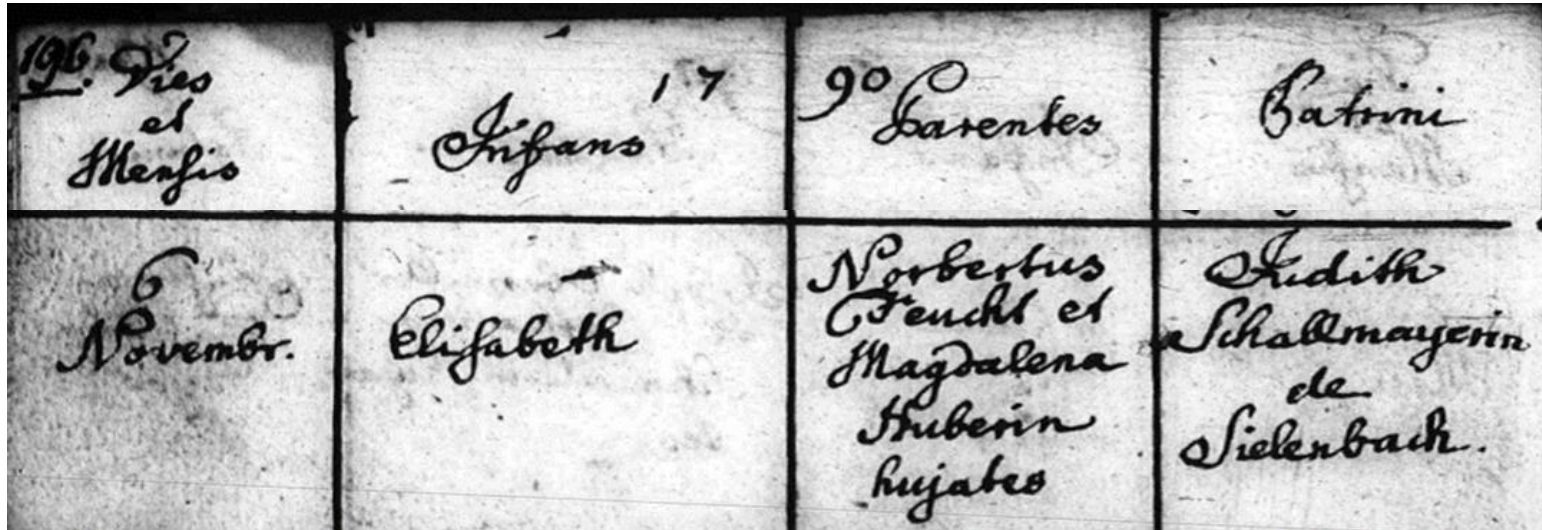 196. Dies
et
Mensis
Infans
17
90
Parentes
Patrini
6
Novembr.
Elisabeth
Norbertus
Feucht et
Magdalena
Huberin
hujates
Judith
Schallmayerin
de
Sielenbach.